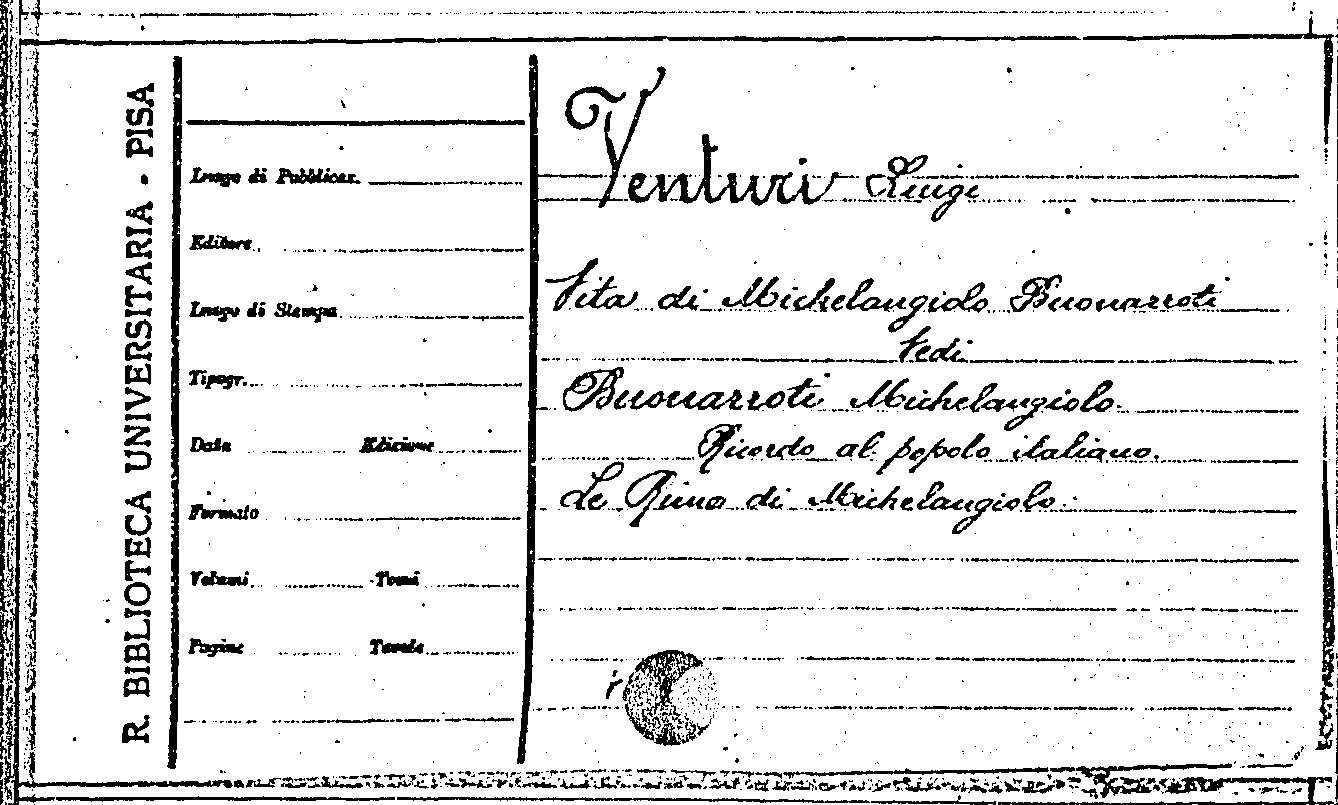 R. BIBLIOTECA UNIVERSITARIA - PISA
Luogo di Pubblicaz.
Editore
Luogo di Stampa
Tipogr.
Data Edizione
Formato
Volumi Tomi
Pagine Tavole
Venturi Luigi
Vita di Michelangiolo Buonarroti
Vedi
Buonarroti Michelangiolo.
Ricordo al popolo italiano.
Le Rime di Michelangiolo.